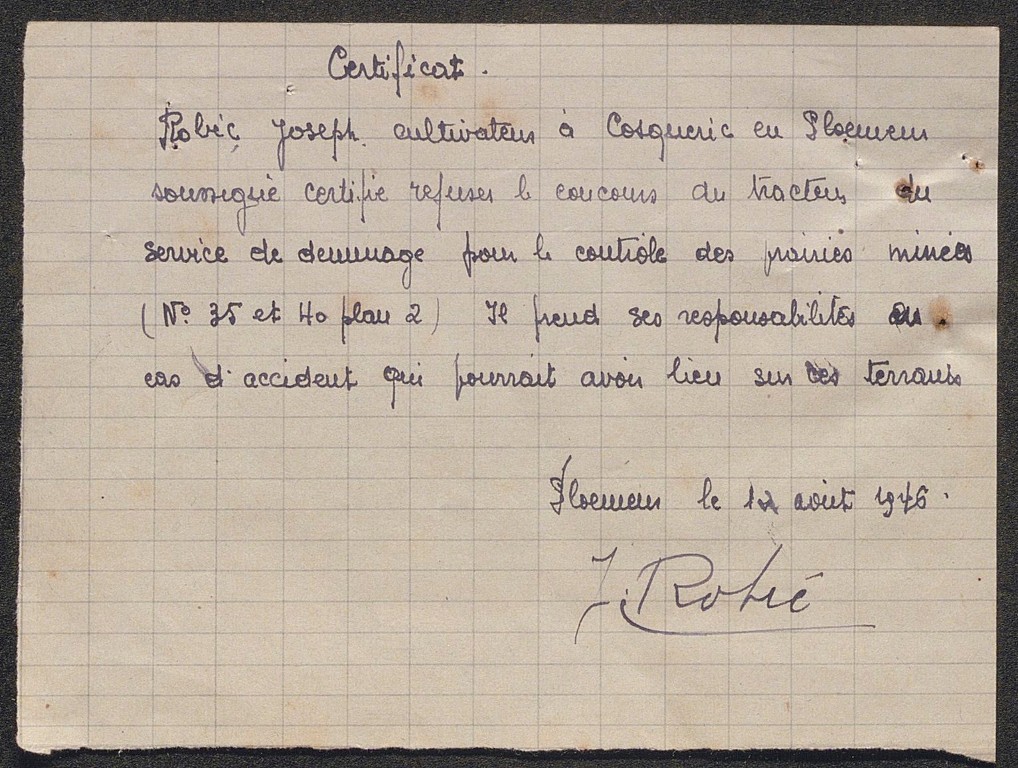 Certificat.
Robic Joseph cultivateur à Cosqueric en Ploemeur
soussigné certifie refuser le concours du tracteur du
service de deminage pour le contrôle des prairies minées
(N° 35 et 40 plan 2) Il prend ses responsabilités au
cas d'accident qui pourrait avoir lieu sur ces terrains
Ploemeur le 12 août 1946.
J. Robic